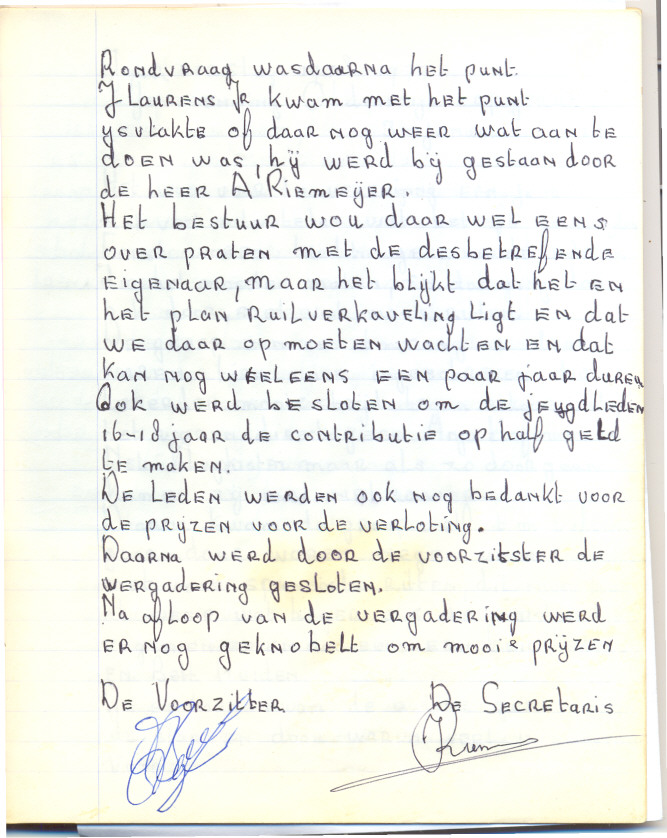 Rondvraag wasdaarna het punt.
J Laurens Jr kwam met het punt
ysvlakte of daar nog weer wat aan te
doen was, hij werd bij gestaan door
de heer A. Riemeijer.
Het bestuur wou daar wel eens
over praten met de desbetrefende
eigenaar, maar het blijkt dat het en
het plan Ruilverkaveling ligt en dat
we daar op moeten wachten en dat
kan nog weeleens een paar jaar duren
Ook werd besloten om de jeugdleden
16-18 jaar de contributie op half geld
te maken.
De leden werden ook nog bedankt voor
de prijzen voor de verloting.
Daarna werd door de voorzitster de
vergadering gesloten.
Na afloop van de vergadering werd
er nog geknobelt om mooie prijzen
De Voorzitter. De Secretaris